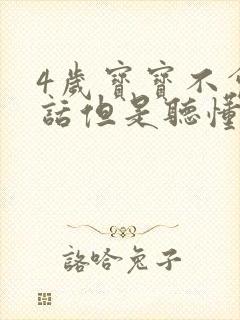 4歲寶寶不會
話但是聽懂
詻哈兔子